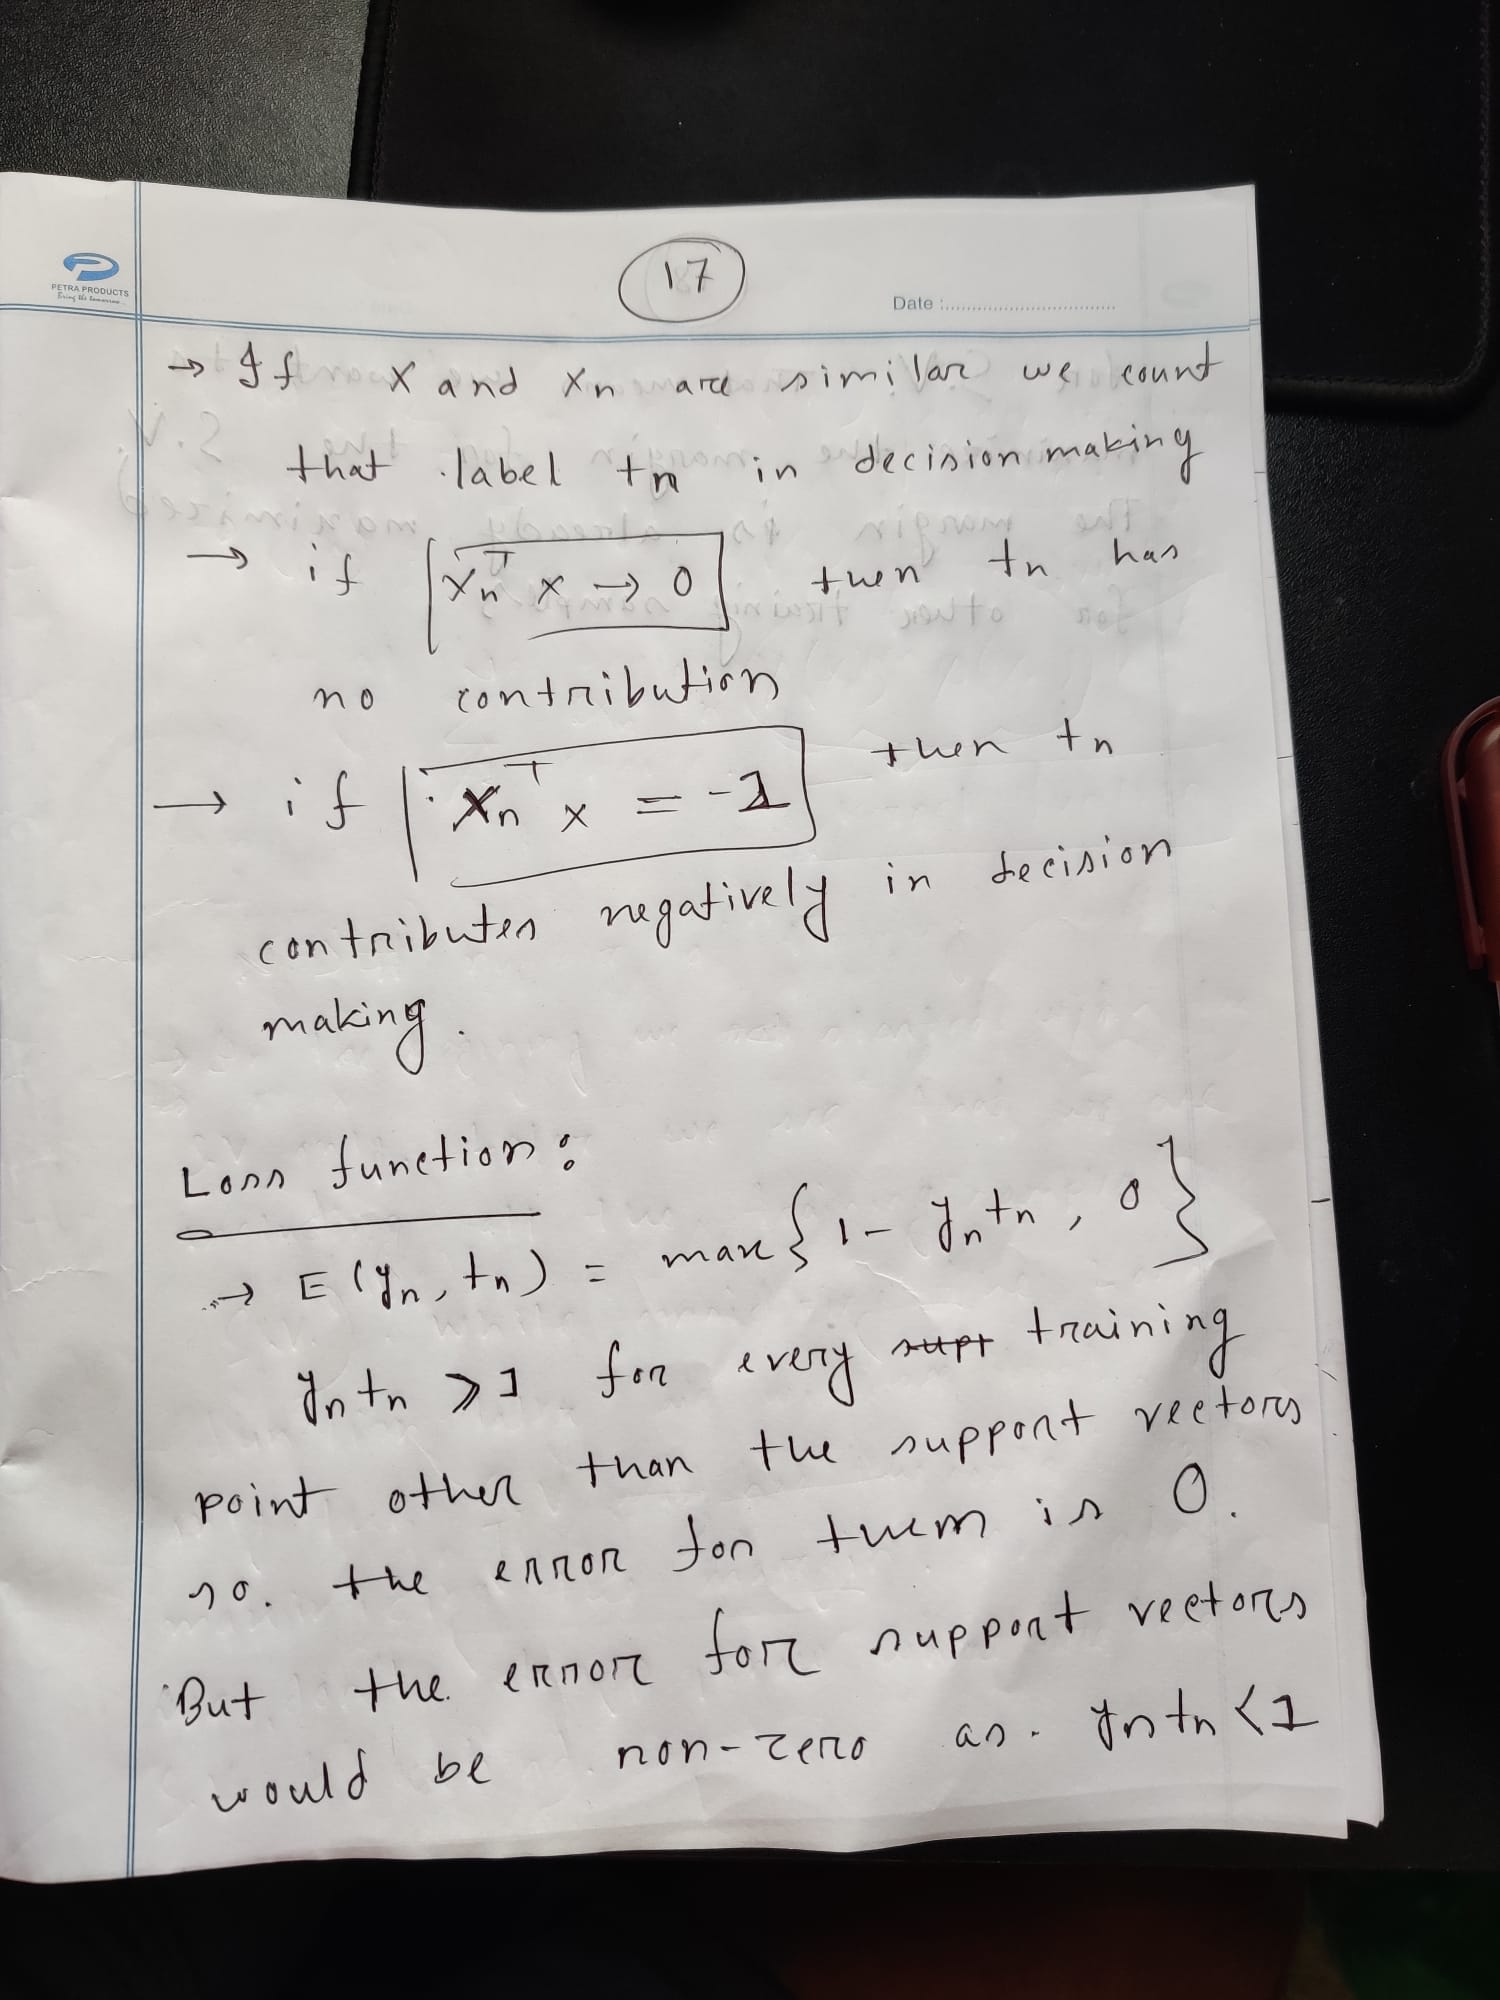 PETRA PRODUCTS
Bring the tomorrow
17
Date :
→ If x and xn are similar we count
that label tn in decision making
→ if xnᵀ x → 0 then tn has
no contribution
→ if xnᵀ x = -1 then tn
contributes negatively in decision
making.
Loss function:
→ E(yn, tn) = max{1- yntn, 0}
yntn ⩾ 1 for every supt training
point other than the support vectors
so. the error for them is 0.
But the error for support vectors
would be non-zero as. yntn < 1